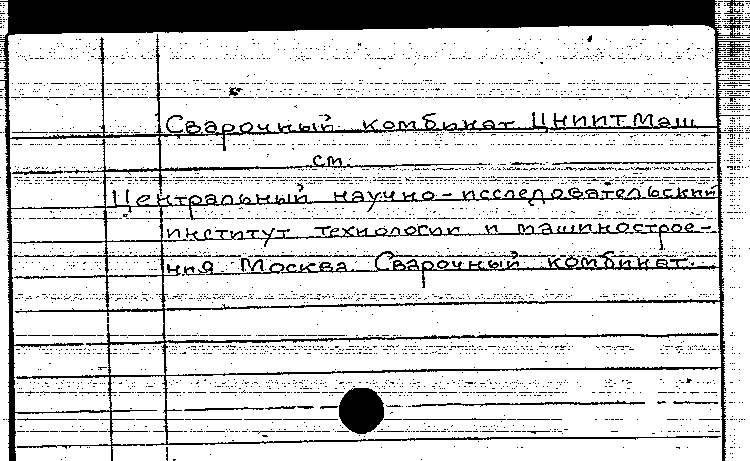 Сварочный комбинат ЦНИИТМаш
см.
Центральный научно-исследовательский
институт технологии и машинострое-
ния Москва. Сварочный комбинат.